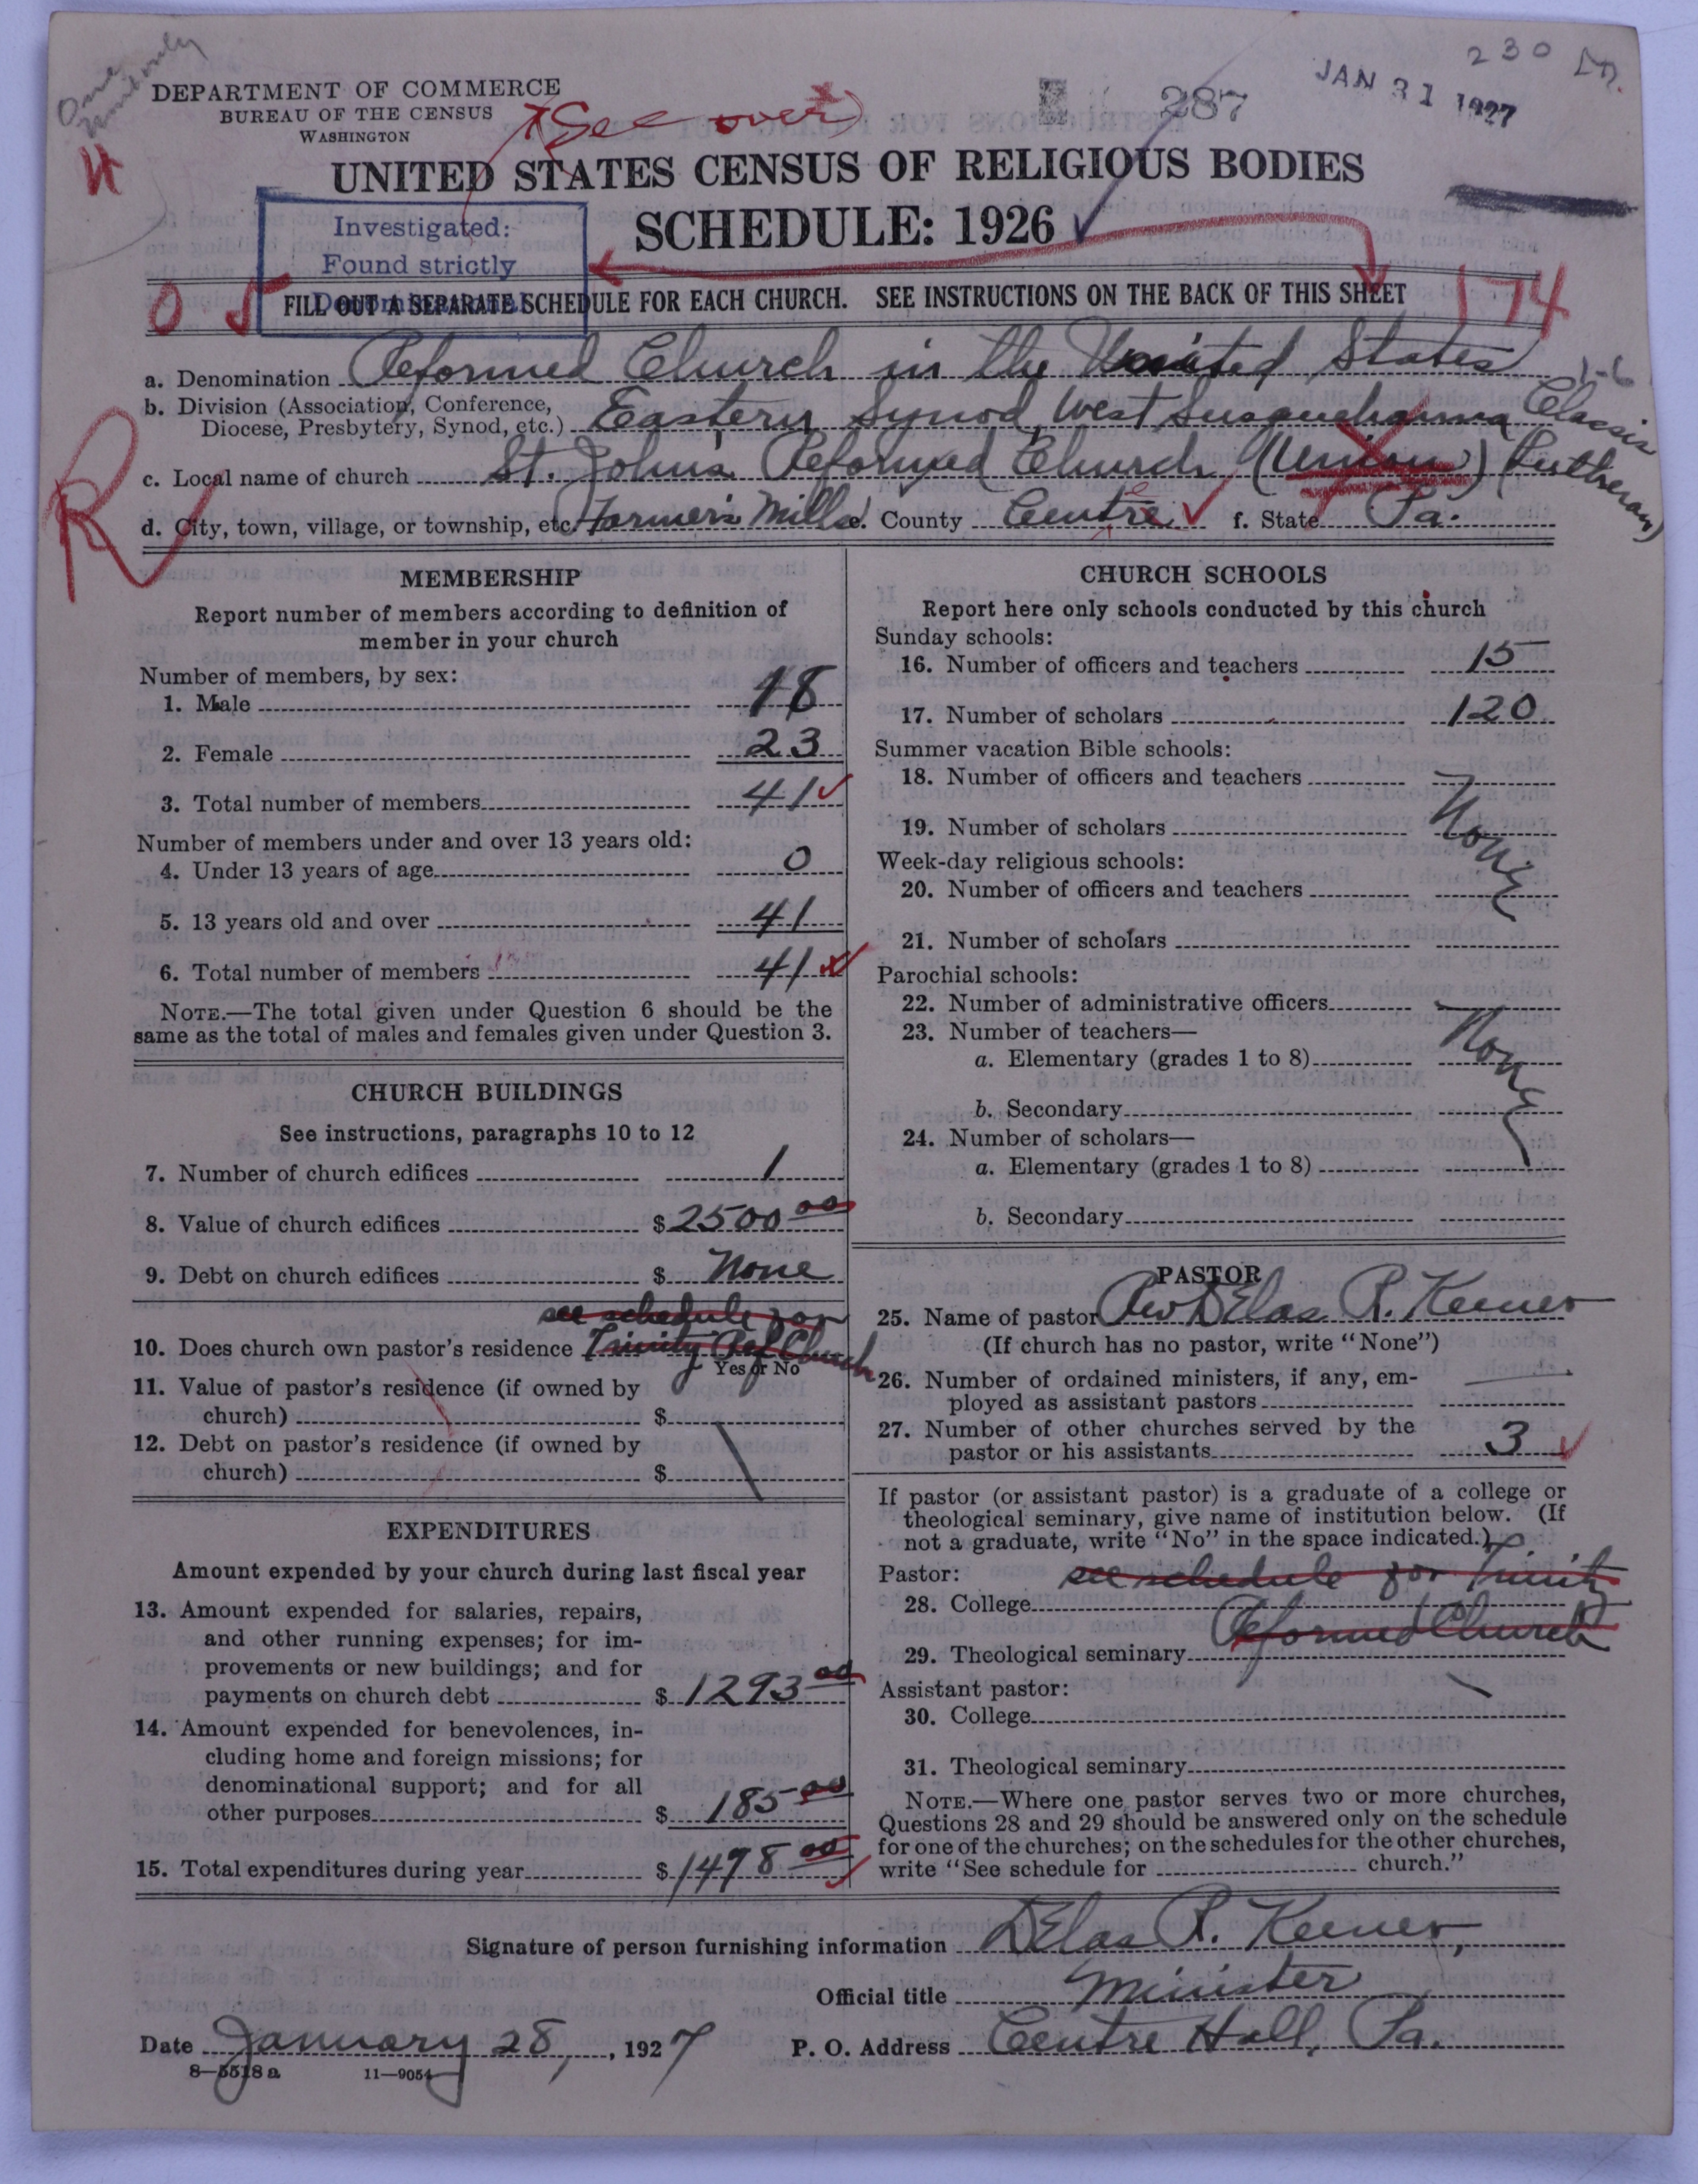 One
230
DEPARTMENT OF COMMERCE
BUREAU OF THE CENSUS
WASHINGTON
(See over)
287
JAN 31 1927
UNITED STATES CENSUS OF RELIGIOUS BODIES
SCHEDULE: 1926
Investigated:
Found strictly
Denominational
FILL OUT A SEPARATE SCHEDULE FOR EACH CHURCH. SEE INSTRUCTIONS ON THE BACK OF THIS SHEET
0 5
174
a. Denomination Reformed Church in the United States
b. Division (Association, Conference,
Diocese, Presbytery, Synod, etc.) Eastern Synod, West Susquehanna Classis
c. Local name of church St. John's Reformed Church (Union) (Lutheran)
d. City, town, village, or township, etc. Farmer's Mills e. County Centre f. State Pa.
R
MEMBERSHIP
Report number of members according to definition of
member in your church
Number of members, by sex:
1. Male 18
2. Female 23
3. Total number of members 41
Number of members under and over 13 years old:
4. Under 13 years of age 0
5. 13 years old and over 41
6. Total number of members 41
NOTE.—The total given under Question 6 should be the
same as the total of males and females given under Question 3.
CHURCH BUILDINGS
See instructions, paragraphs 10 to 12
7. Number of church edifices 1
8. Value of church edifices $2500 00
9. Debt on church edifices $ None
see schedule for
10. Does church own pastor's residence Trinity Ref Church
Yes or No
11. Value of pastor's residence (if owned by
church) $
12. Debt on pastor's residence (if owned by
church) $
EXPENDITURES
Amount expended by your church during last fiscal year
13. Amount expended for salaries, repairs,
and other running expenses; for im-
provements or new buildings; and for
payments on church debt $ 1293 00
14. Amount expended for benevolences, in-
cluding home and foreign missions; for
denominational support; and for all
other purposes $ 185 00
15. Total expenditures during year $ 1478 00
CHURCH SCHOOLS
Report here only schools conducted by this church
Sunday schools:
16. Number of officers and teachers 15
17. Number of scholars 120
Summer vacation Bible schools:
18. Number of officers and teachers
19. Number of scholars None
Week-day religious schools:
20. Number of officers and teachers
21. Number of scholars
Parochial schools:
22. Number of administrative officers
23. Number of teachers—
a. Elementary (grades 1 to 8) None
b. Secondary
24. Number of scholars—
a. Elementary (grades 1 to 8)
b. Secondary
PASTOR
25. Name of pastor Rev DElas R. Keener
(If church has no pastor, write "None")
26. Number of ordained ministers, if any, em-
ployed as assistant pastors
27. Number of other churches served by the
pastor or his assistants 3
If pastor (or assistant pastor) is a graduate of a college or
theological seminary, give name of institution below. (If
not a graduate, write "No" in the space indicated.)
Pastor: see schedule for Trinity
28. College
Reformed Church
29. Theological seminary
Assistant pastor:
30. College
31. Theological seminary
NOTE.—Where one pastor serves two or more churches,
Questions 28 and 29 should be answered only on the schedule
for one of the churches; on the schedules for the other churches,
write "See schedule for church."
Signature of person furnishing information DElas R. Keener,
Official title Minister
Date January 28, 1927 P. O. Address Centre Hall, Pa.
8—5518 a 11—9054